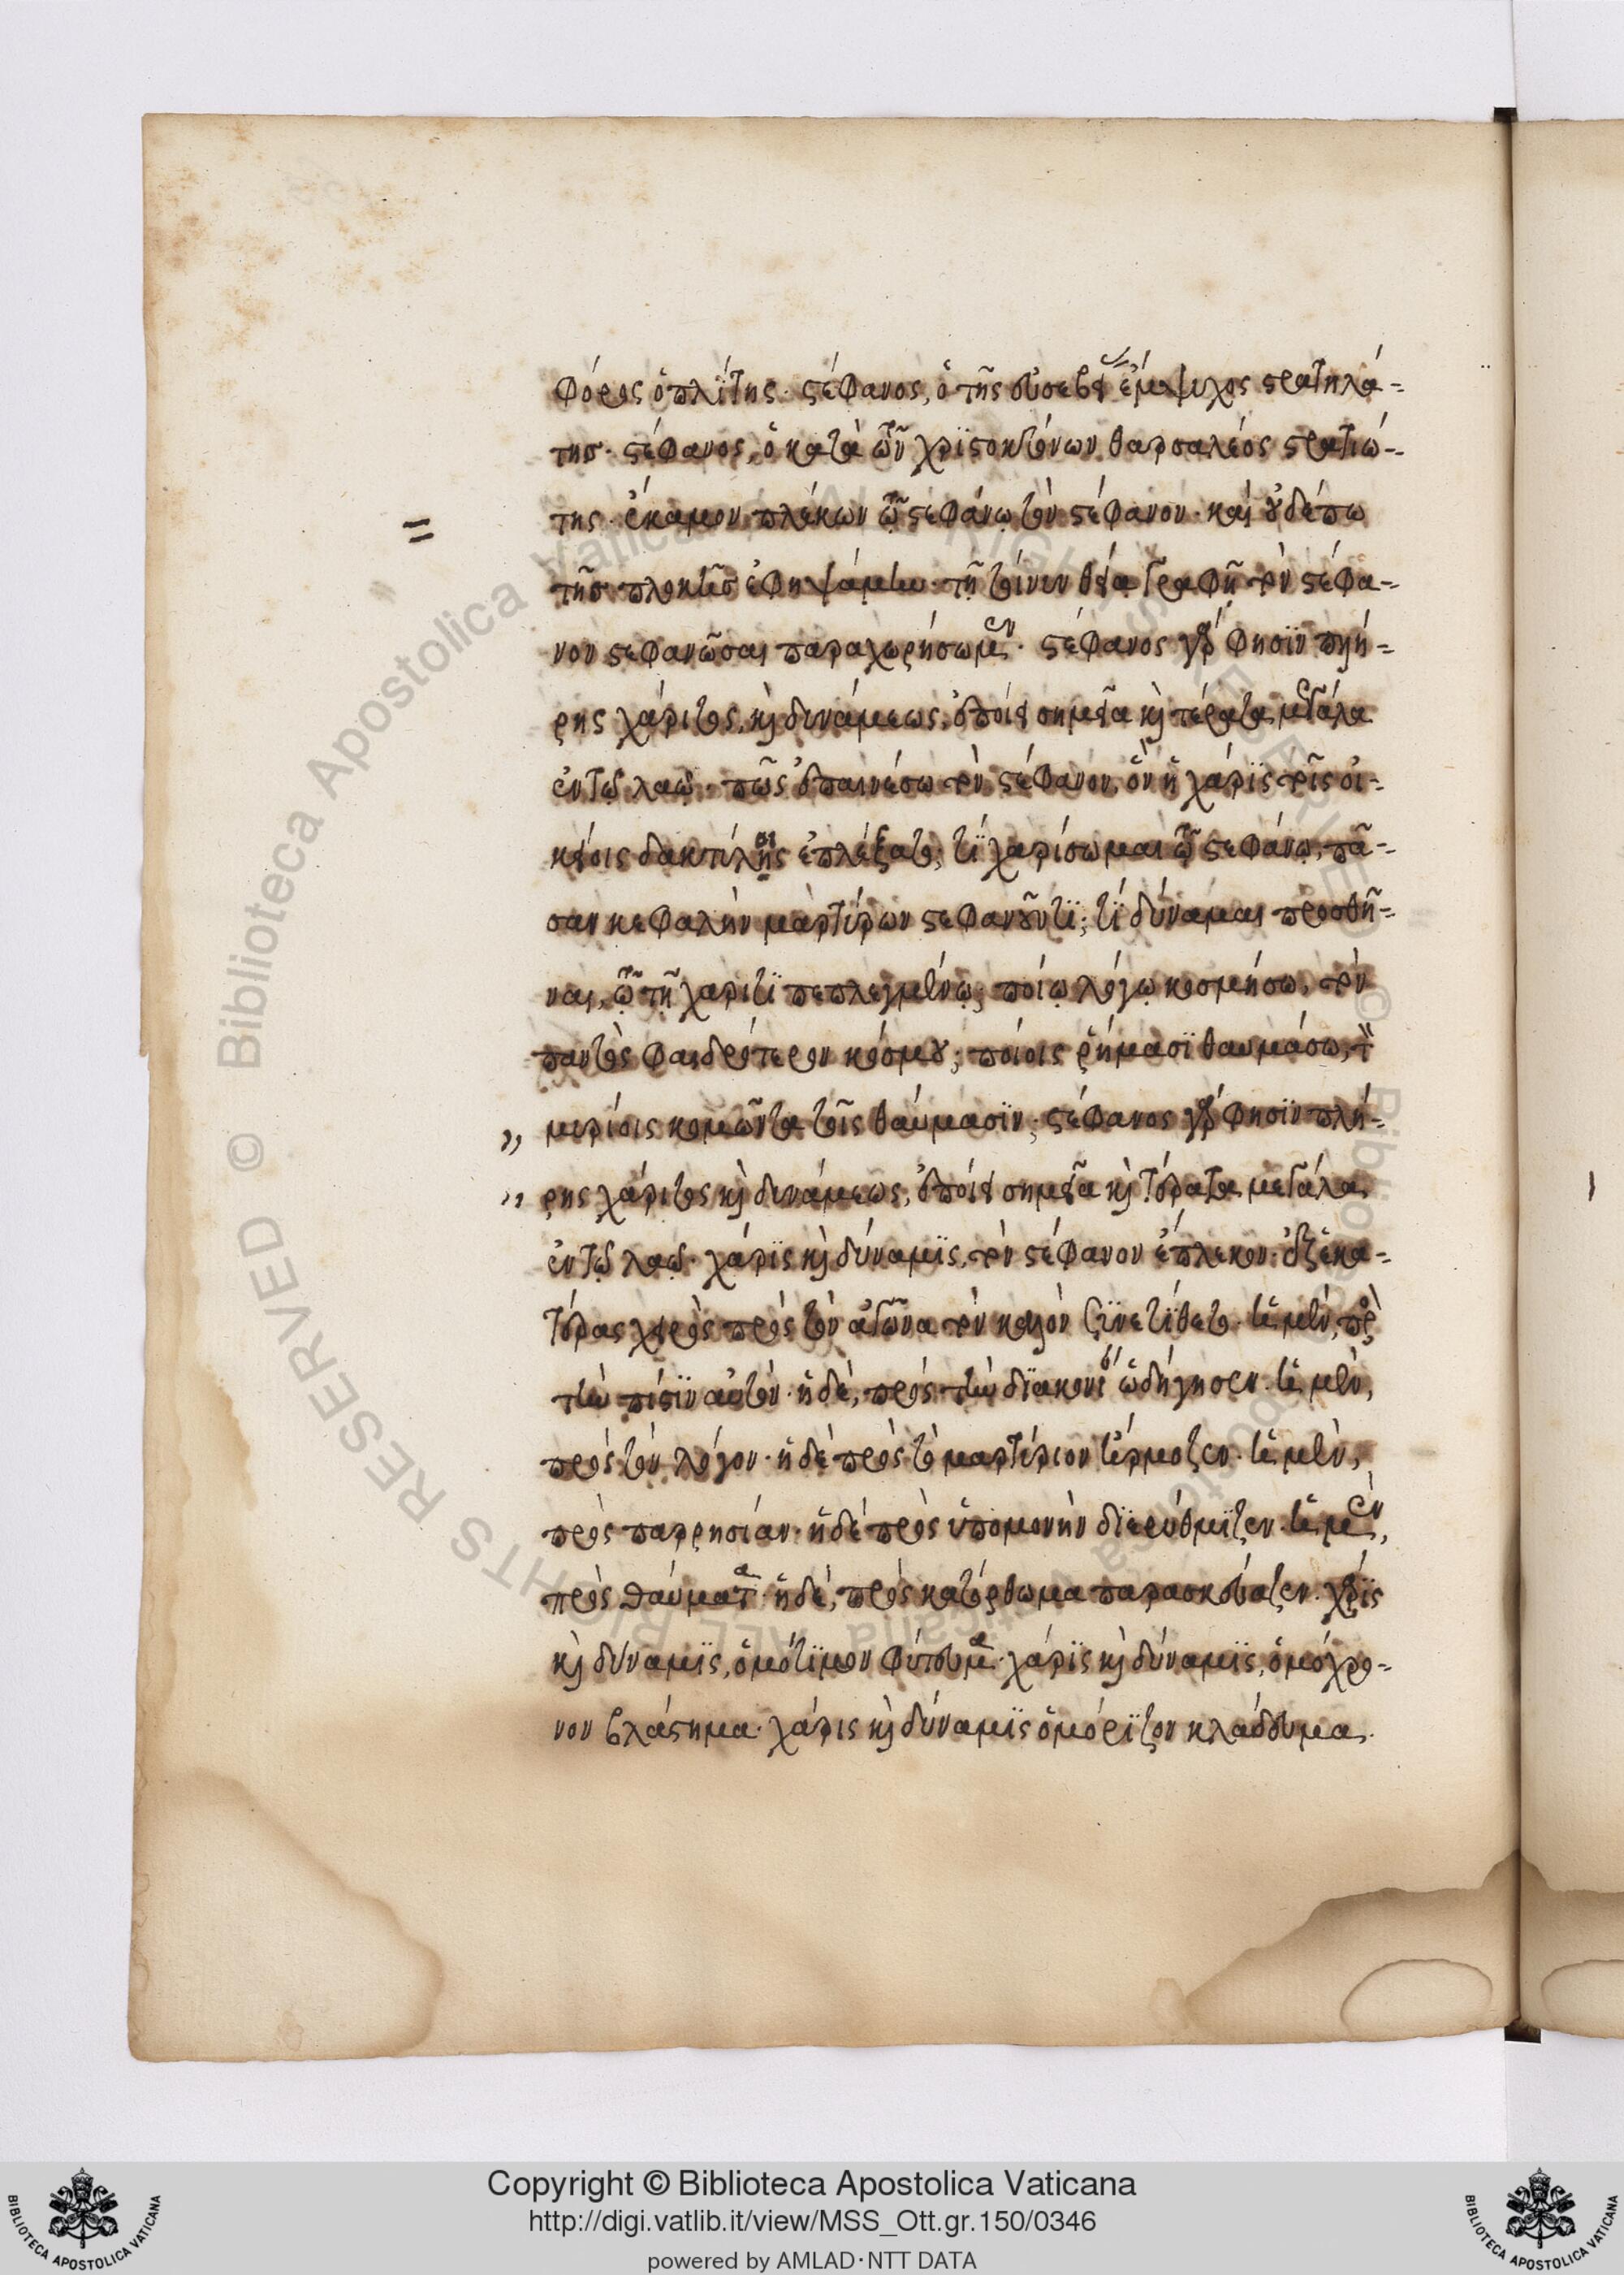 φόρος ὁπλίτης· στέφανος, ὁ τῆς εὐσεβείας ἔμψυχος στρατηλά-
της· στέφανος, ὁ κατὰ τῶν χριστοκτόνων θαρσαλέος στρατιώ-
της· ἔκαμον πλέκων τῷ στεφάνῳ τὸν στέφανον· καὶ οὐδέπω
τῆς πλοκῆς ἐφηψάμην· τῇ τοίνυν θείᾳ γραφῇ τὸν στέφα-
νον στεφανῶσαι παραχωρήσωμεν· στέφανος γάρ φησιν πλή-
ρης χάριτος, καὶ δυνάμεως, ἐποίει σημεῖα καὶ τέρατα μεγάλα
ἐν τῷ λαῷ· πῶς ἐπαινέσω τὸν στέφανον, ὃν ἡ χάρις τοῖς οἰ-
κείοις δακτύλοις ἐπλέξατο; τί χαρίσωμαι τῷ στεφάνῳ, πᾶ-
σαν κεφαλὴν μαρτύρων στεφανοῦντι; τί δύναμαι προσθῆ-
ναι, τῷ τῇ χάριτι πεπλεγμένῳ; ποίῳ λόγῳ κοσμήσω, τὸν
παντὸς φαιδρότερον κόσμου; ποίοις ῥήμασι θαυμάσω, τὸν
μυρίοις κομῶντα τοῖς θαύμασιν; στέφανος γάρ φησιν πλή-
ρης χάριτος καὶ δυνάμεως, ἐποίει σημεῖα καὶ τέρατα μεγάλα
ἐν τῷ λαῷ· χάρις καὶ δύναμις, τὸν στέφανον ἔπλεκον· ἐξ ἑκα-
τέρας χειρὸς πρὸς τὸν ἀγῶνα τὸν καλὸν συνετίθετο· ἡ μὲν, πρὸς
τὴν πίστιν αὐτὸν· ἡ δὲ, πρὸς τὴν διακονίαν ὡδήγησεν· ἡ μὲν,
πρὸς τὸν λόγον· ἡ δὲ πρὸς τὸ μαρτύριον ἥρμοζεν· ἡ μὲν,
πρὸς παρρησίαν· ἡ δὲ πρὸς ὑπομονὴν διερύθμιζεν· ἡ μὲν,
πρὸς θαύματα· ἡ δὲ, πρὸς κατόρθωμα παρασκεύαζεν· χάρις
καὶ δύναμις, ὁμότιμον φύτευμα· χάρις καὶ δύναμις, ὁμόχρο-
νον βλάστημα· χάρις καὶ δύναμις ὁμόριζον κλάδευμα·
Copyright © Biblioteca Apostolica Vaticana
http://digi.vatlib.it/view/MSS_Ott.gr.150/0346
powered by AMLAD·NTT DATA
BIBLIOTECA APOSTOLICA VATICANA
BIBLIOTECA APOSTOLICA VATICANA